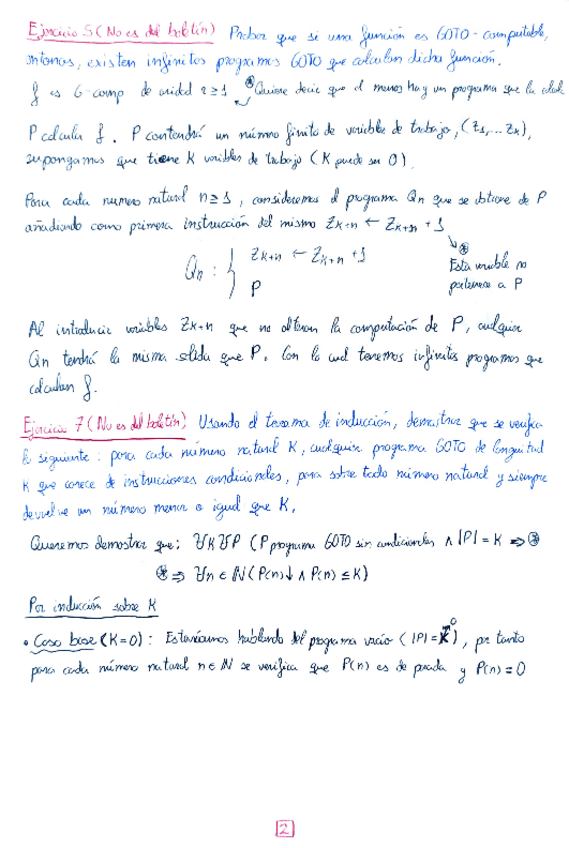 Ejercicio 5 (No es del boletín) Probar que si una función es GOTO-computable,
entonces, existen infinitos programas GOTO que calculan dicha función.
f es G-comp de aridad r ≥ 1 ⊛ Quiere decir que al menos hay un programa que la calcula
P calcula f. P contendrá un número finito de variables de trabajo, (Z1,... Zk),
supongamos que tiene K variables de trabajo (K puede ser 0).
Para cada numero natural n ≥ 1, consideremos el programa Qn que se obtiene de P
añadiendo como primera instrucción del mismo Zk+n ← Zk+n + 1
Qn : { Zk+n ← Zk+n + 1
P
⊛
Esta variable no
pertenece a P
Al introducir variables Zk+n que no alteran la computación de P, cualquier
Qn tendrá la misma salida que P. Con lo cual tenemos infinitos programas que
calculan f.
Ejercicio 7 (No es del boletín) Usando el teorema de inducción, demostrar que se verifica
lo siguiente: para cada número natural K, cualquier programa GOTO de longitud
K que carece de instrucciones condicionales, para sobre todo número natural y siempre
devuelve un número menor o igual que K.
Queremos demostrar que: ∀K∀P (P programa GOTO sin condicionales ∧ |P| = K ⇒ ⊛
⊛ ⇒ ∀n ∈ ℕ (P(n)↓ ∧ P(n) ≤ K)
Por inducción sobre K
• Caso base (K=0): Estaríamos hablando del programa vacío (|P|=K 0), por tanto
para cada número natural n ∈ ℕ se verifica que P(n) es de parada y P(n) = 0
2